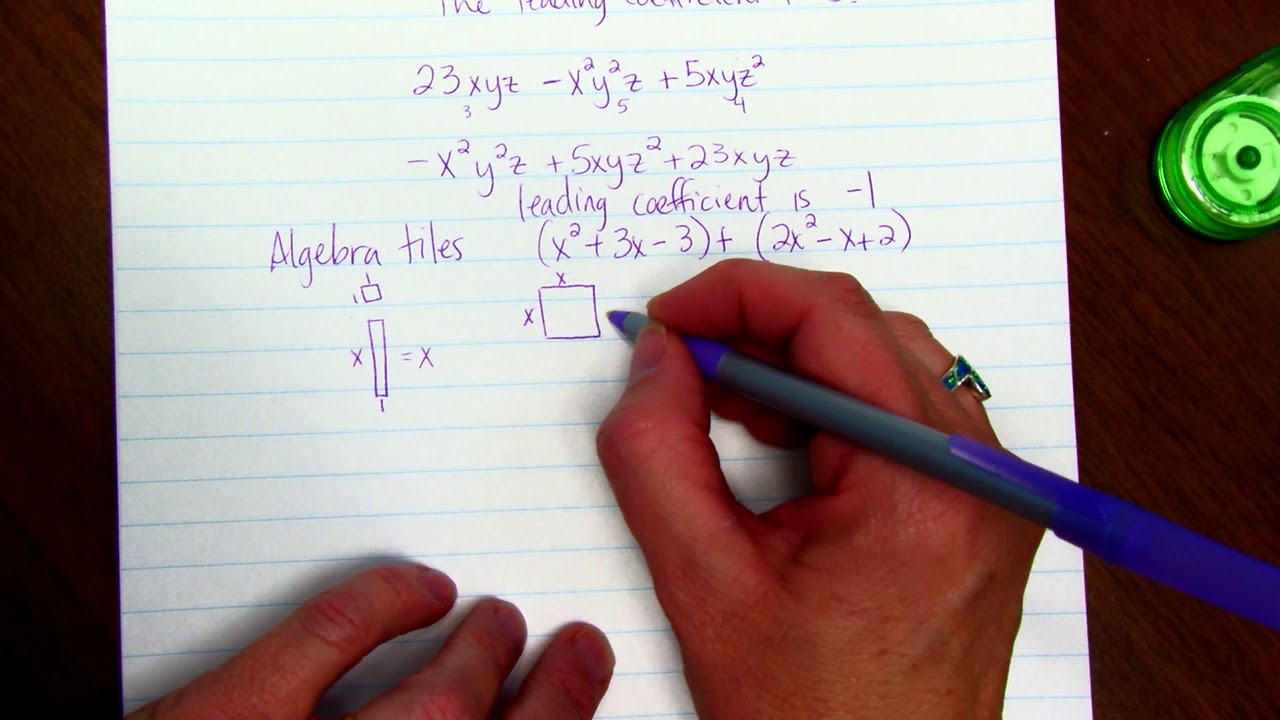 The leading coefficient
23xyz - x²y²z + 5xyz²
3 5 4
-x²y²z + 5xyz² + 23xyz
leading coefficient is -1
Algebra tiles (x² + 3x - 3) + (2x² - x + 2)
1 x
1 x
x = x
1